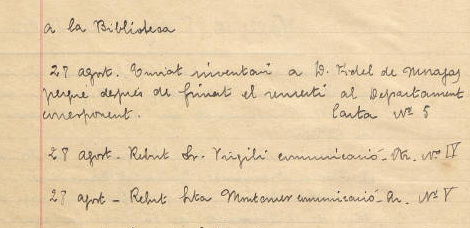 a la Biblioteca
27 agost. Enviat inventari a D. Fidel de Moragas
perque després de firmat el remesti al Departament
corresponent. Carta Nº 5
28 agost. Rebut Sr. Virgili comunicació - Nº IV
27 agost - Rebut Srta Montaner comunicació - Nº V